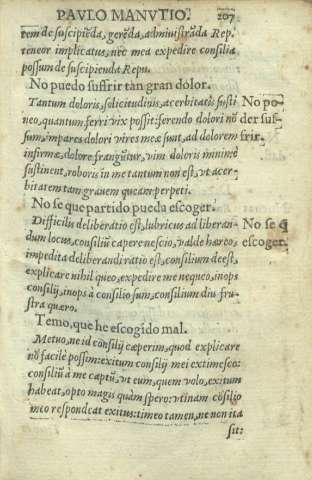 PAVLO MANVTIO. 207
tem de suscipiēda, gerēda, administrāda Rep.
teneor implicatus, nec mea expedire consilia
possum de suscipienda Repu.
No puedo suffrir tan gran dolor.
Tantum doloris, solicitudinis, acerbitatis susti
neo, quantum ferri vix possit: ferendo dolori nō
sum, impares dolori vires meæ sunt, ad dolorem
infirmæ, dolore frangūtur, vim doloris minimè
sustinent, roboris in me tantum non est, vt acer-
bitatem tam grauem queam perpeti.
No po-
der suf-
frir.
No se que partido pueda escoger.
Difficilis deliberatio est, lubricus ad liberan-
dum locus, consiliū capere nescio, valde hæreo,
impedita deliberandi ratio est, consilium deest,
explicare nihil queo, expedire me nequeo, inops
consilij, inops à consilio sum, consilium diu fru-
stra quæro.
No se q̄
escoger.
Temo, que he escogido mal.
Metuo, ne id consilij cæperim, quod explicare
nō facilè possim: exitum consilij mei extimesco:
consiliū à me captū, vt eum, quem volo, exitum
habeat, opto magis quàm spero: vtinam cōsilio
meo respondeat exitus: timeo tamen, ne non ita
sit: